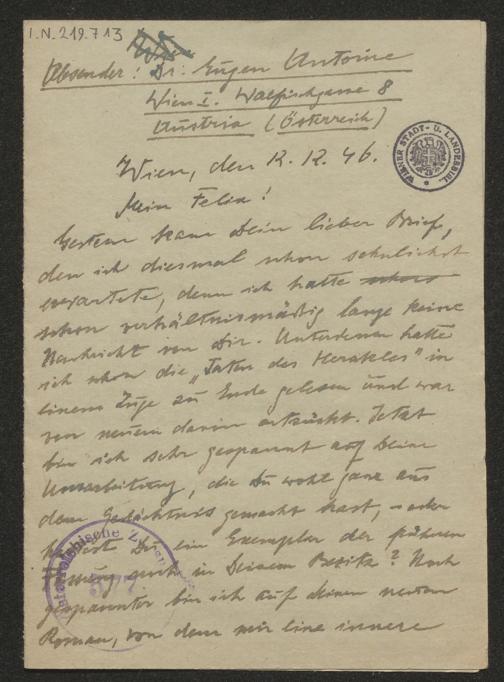 I.N. 219.713
Absender: Dr. Eugen Antoine
Wien I. Walfischgasse 8
Austria (Österreich)
WIENER STADT- U. LANDESBIBL.
Wien, den 12.12.46.
Mein Felix!
Gestern kam Dein lieber Brief,
den ich diesmal schon sehnlichst
erwartete, denn ich hatte schon
schon verhältnismäßig lange keine
Nachricht von Dir. Unterdessen hatte
ich schon die „Taten des Herakles" in
einem Zuge zu Ende gelesen und war
von neuem davon entzückt. Jetzt
bin ich sehr gespannt auf Deine
Umarbeitung, die Du wohl ganz aus
dem Gedächtnis gemacht hast, – oder
Du ein Exemplar der frühern
Fassung auch in Deinem Besitz? Noch
gespannter bin ich auf Deinen neuen
Roman, von dem mir eine innere
Österreichische Z
377